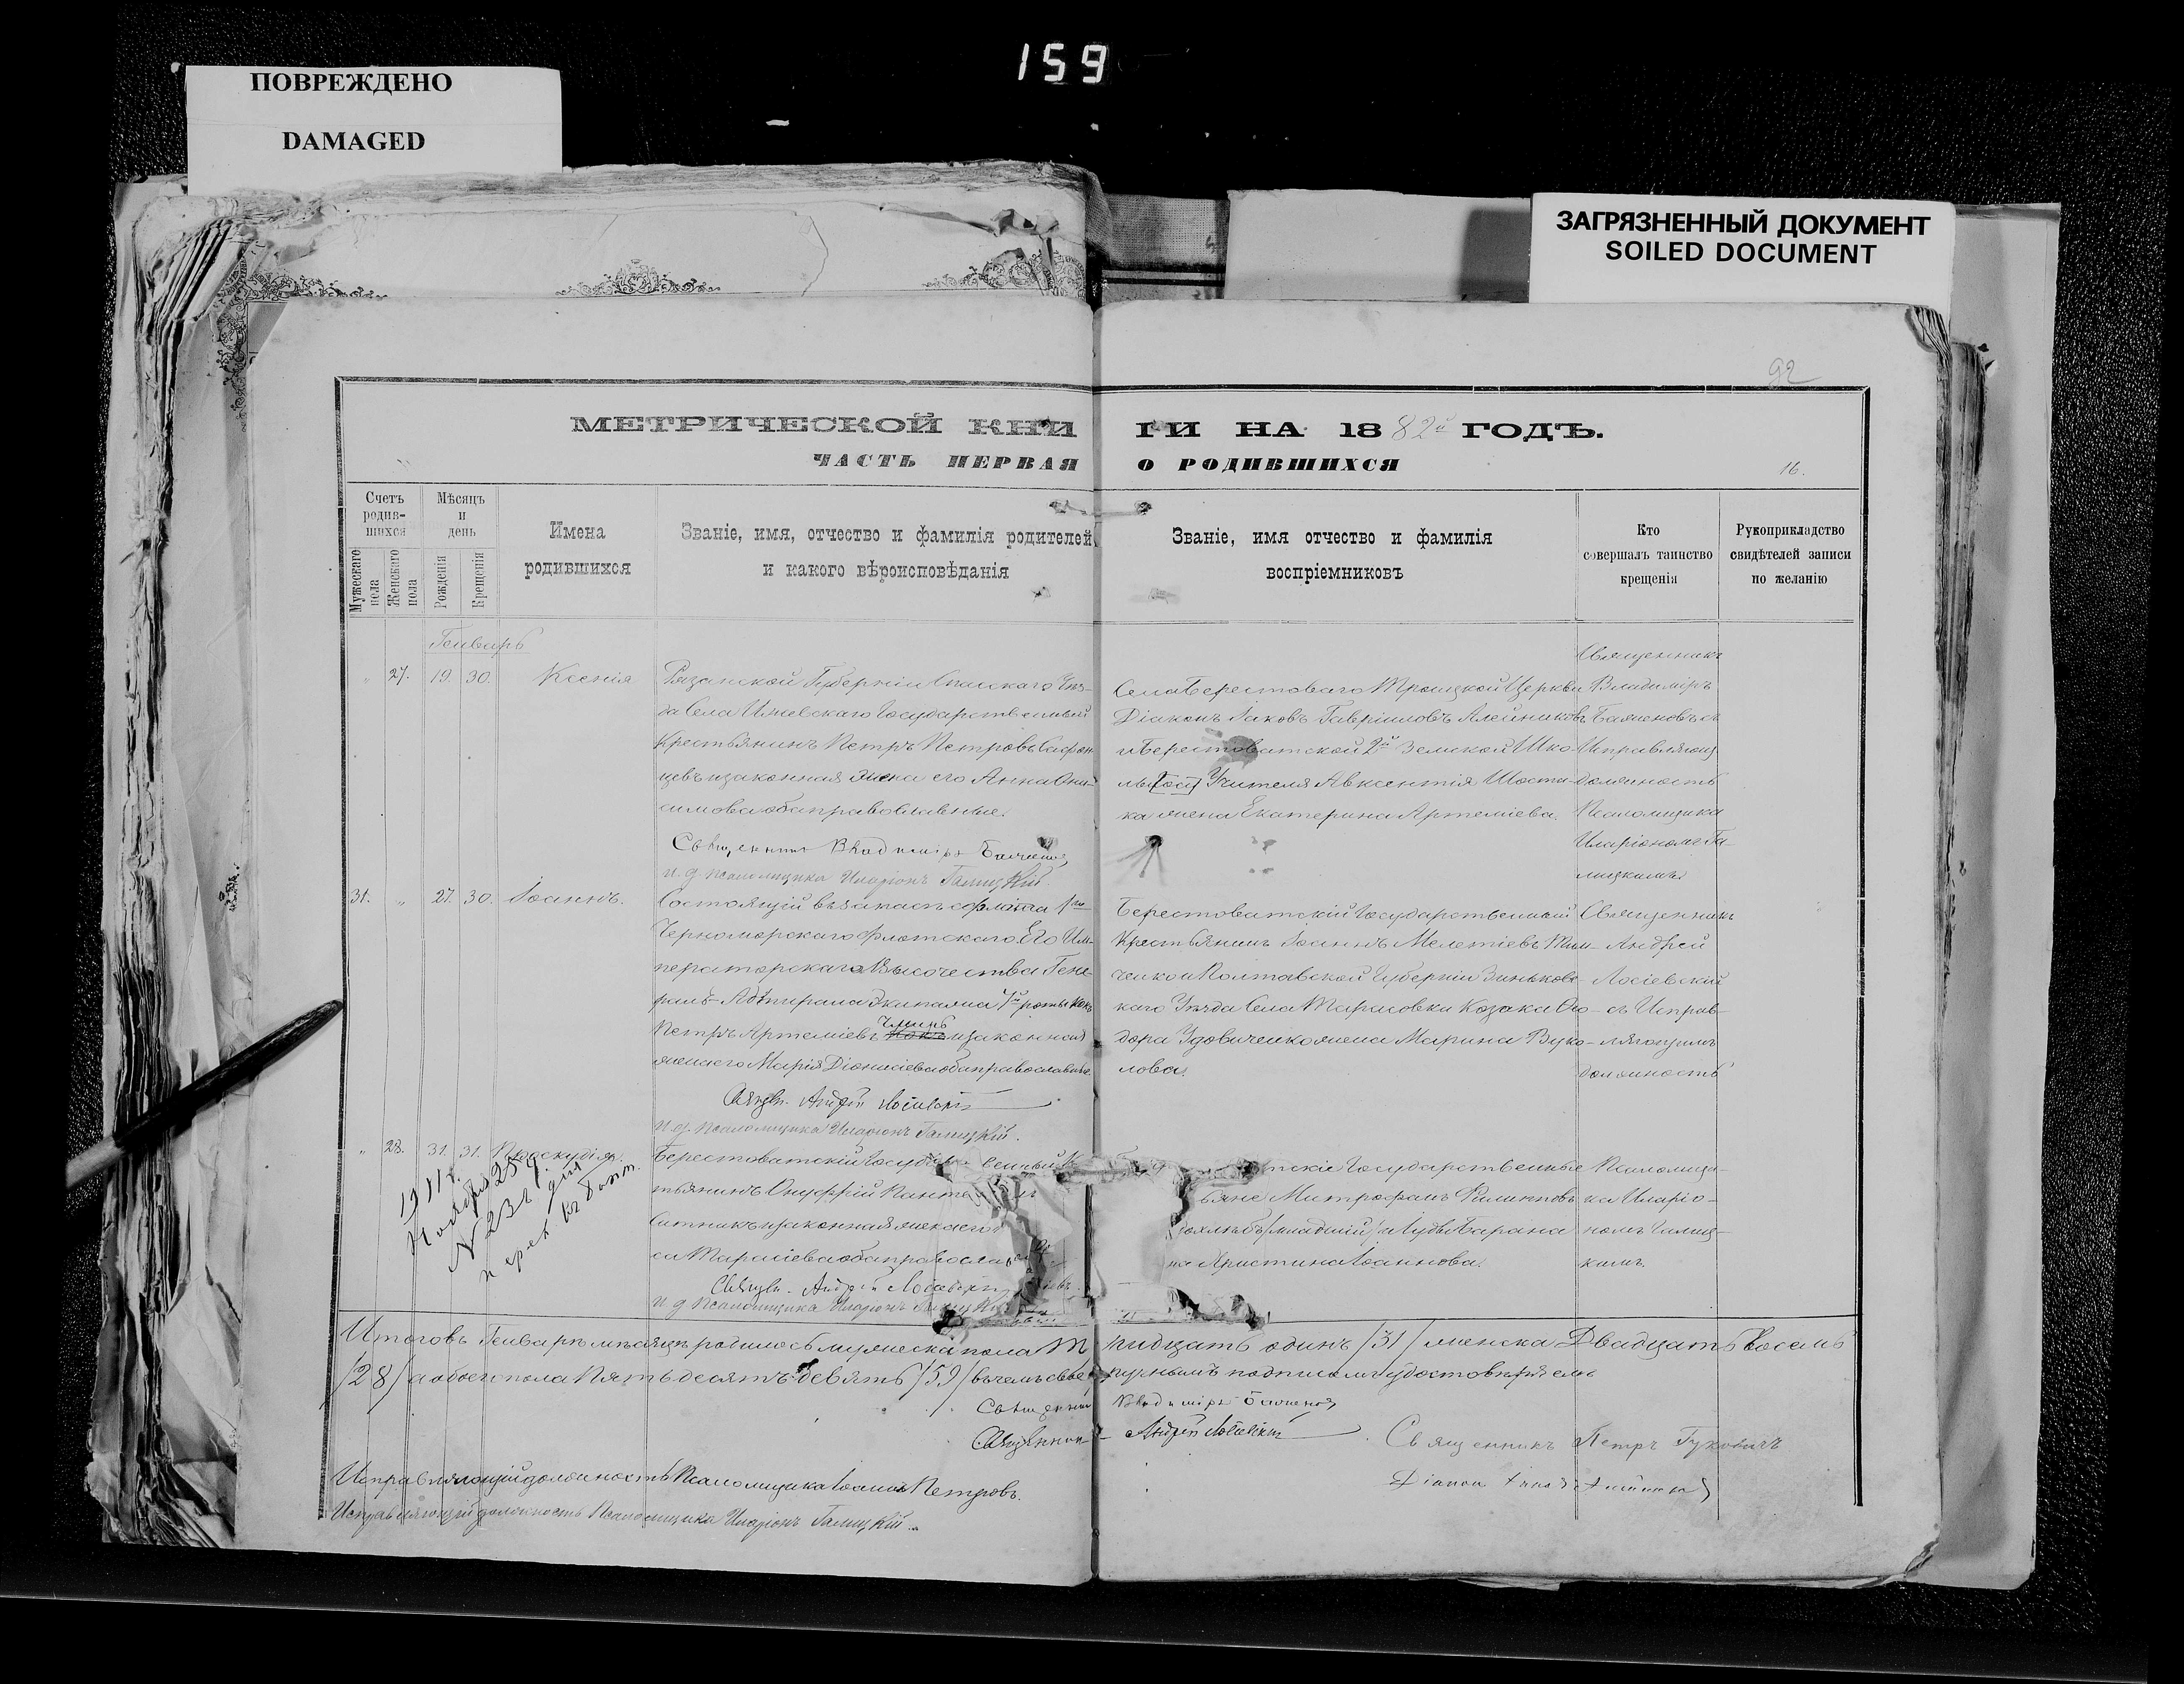 159
ПОВРЕЖДЕНО
DAMAGED
ЗАГРЯЗНЕННЫЙ ДОКУМЕНТ
SOILED DOCUMENT
92
МЕТРИЧЕСКОЙ КНИ ГИ НА 1882й ГОДЪ.
ЧАСТЬ ПЕРВАЯ О РОДИВШИХСЯ
16.
Счетъ родив-шихся
Мужескаго пола
Женскаго пола
Мѣсяцъ и день
Рожденія
Крещенія
Имена родившихся
Званіе, имя, отчество и фамилія родителей
и какого вѣроисповѣданія
Званіе, имя отчество и фамилія
воспріемниковъ
Кто
совершалъ таинство
крещенія
Рукоприкладство
свидѣтелей записи
по желанію
Генварь
" 27. 19. 30. Ксенія
Рязанской Губерніи Спасскаго Уѣз-
да Села Ижевскаго Государственный
Крестьянинъ Петръ Петровъ Сафон
цевъ и законная жена его Анна Они-
симова оба православные.
Священникъ Владиміръ Баженовъ
и. д. псаломщика Иларіонъ Галицкій.
Села Берестоваго Троицкой Церкви
Діаконъ Іаковъ Гавріиловъ Алейниковъ
и Берестоватской 2й Земской Шко-
лы Учителя Авксентія Шоста-
ка жена Екатерина Артеміева.
Священникъ
Владиміръ
Баженовъ съ
Исправляющ
должность
Псаломщика
Иларіономъ Га-
лицкимъ
31. " 27. 30. Іоаннъ.
Состоящій въ запасѣ флота 1го
Черноморскаго флотскаго Его Им-
ператорскаго Высочества Гене-
ралъ-Адмирала Экипажа роты
Петръ Артеміевъ и законная
жена его Марія Діонисіева оба православные.
Священ. Андрей Лосіевскій
и. д. псаломщика Иларіонъ Галицкій.
Берестоватскій Государственный
Крестьянинъ Іоаннъ Мелетіевъ Тим-
ченко и Полтавской Губерніи Зеньковс-
каго Уѣзда Села Тарасовки Козака Ѳео-
дора Удовиченко жена Марина Вуко-
лова.
Священникъ
Андрей
Лосіевскій
съ Исправ-
ляющимъ
должность
" 28. 31. 31. Параскудія.
1911 г.
Ноября 25 д.
Берестоватскій Государственный
тьянинъ Онуфрій Панте
Ситникъ и законная жена его
са Тарасіева оба православ
Священ. Андрей Лосіевскій
и д псаломщика Иларіонъ Галицкій
тскіе Государственные
ьяне Митрофанъ Филиповъ
младшій и Барана
на Христина Іоаннова.
Псаломщи-
ка Иларіо-
номъ Галиц-
кимъ.
Итого въ Генварѣ мѣсяцѣ родилось мужеска пола Т ридцать одинъ /31/ женска Двадцать восемь
/28/ а обоего пола Пятьдесятъ девять /59/ въ чемъ своеручнымъ подписомъ удостовѣряемъ
Священникъ Владиміръ Баженовъ
Священникъ Андрей Лосіевскій
Священникъ Петръ Гуковичъ
Исправляющій должность Псаломщика Іоаннъ Петровъ.
Исправляющій должность Псаломщика Иларіонъ Галицкій.